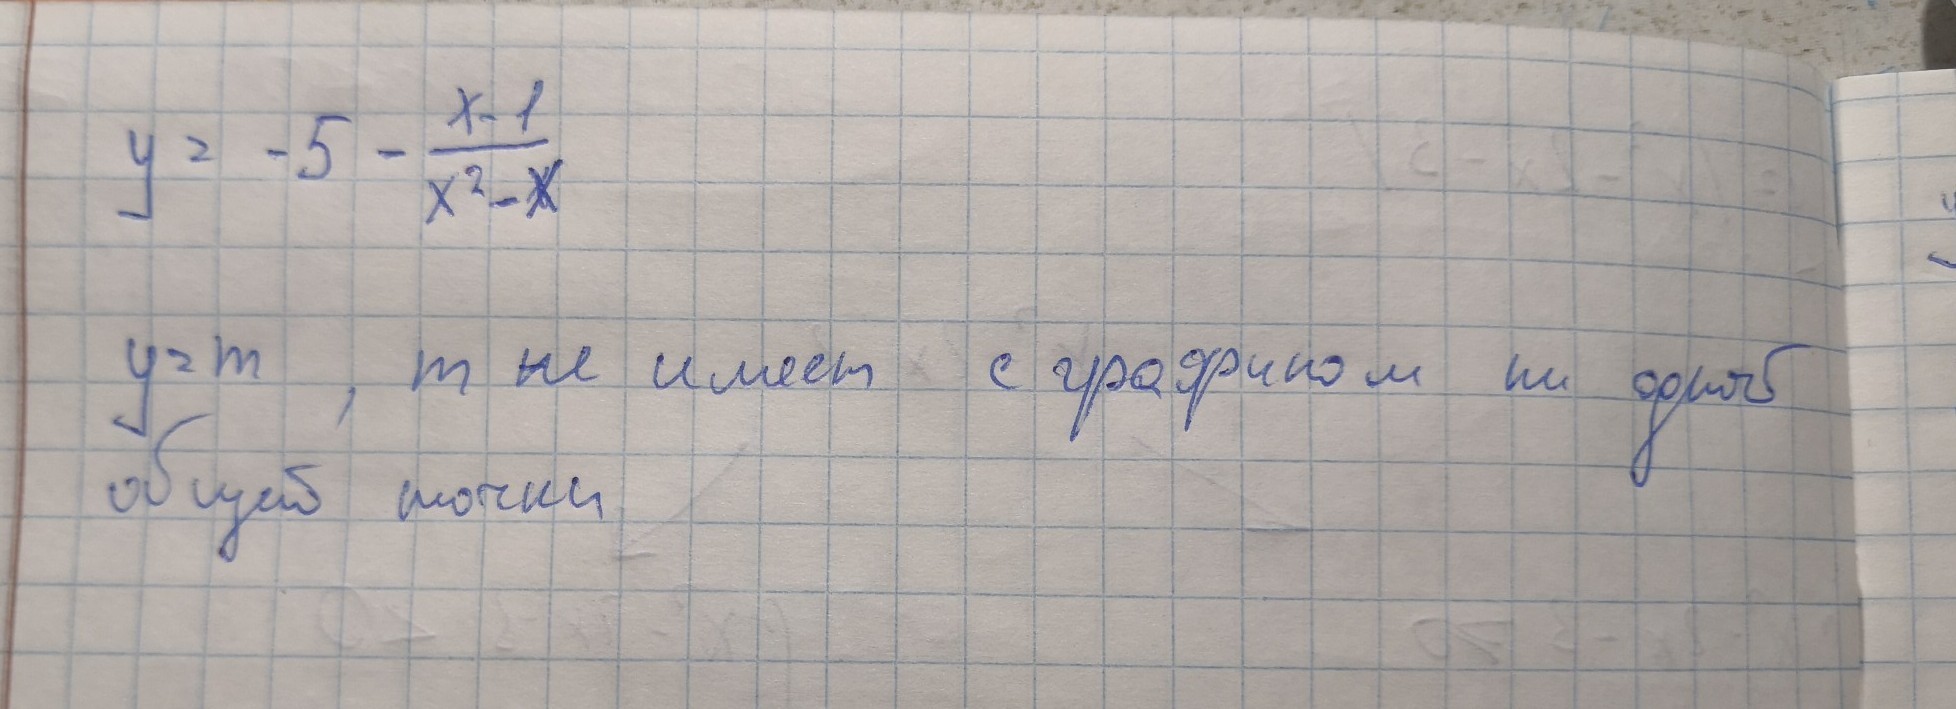 y = -5 - \frac{x-1}{x^2-x}
y=m , m не имеет с графиком ни одной
общей точки